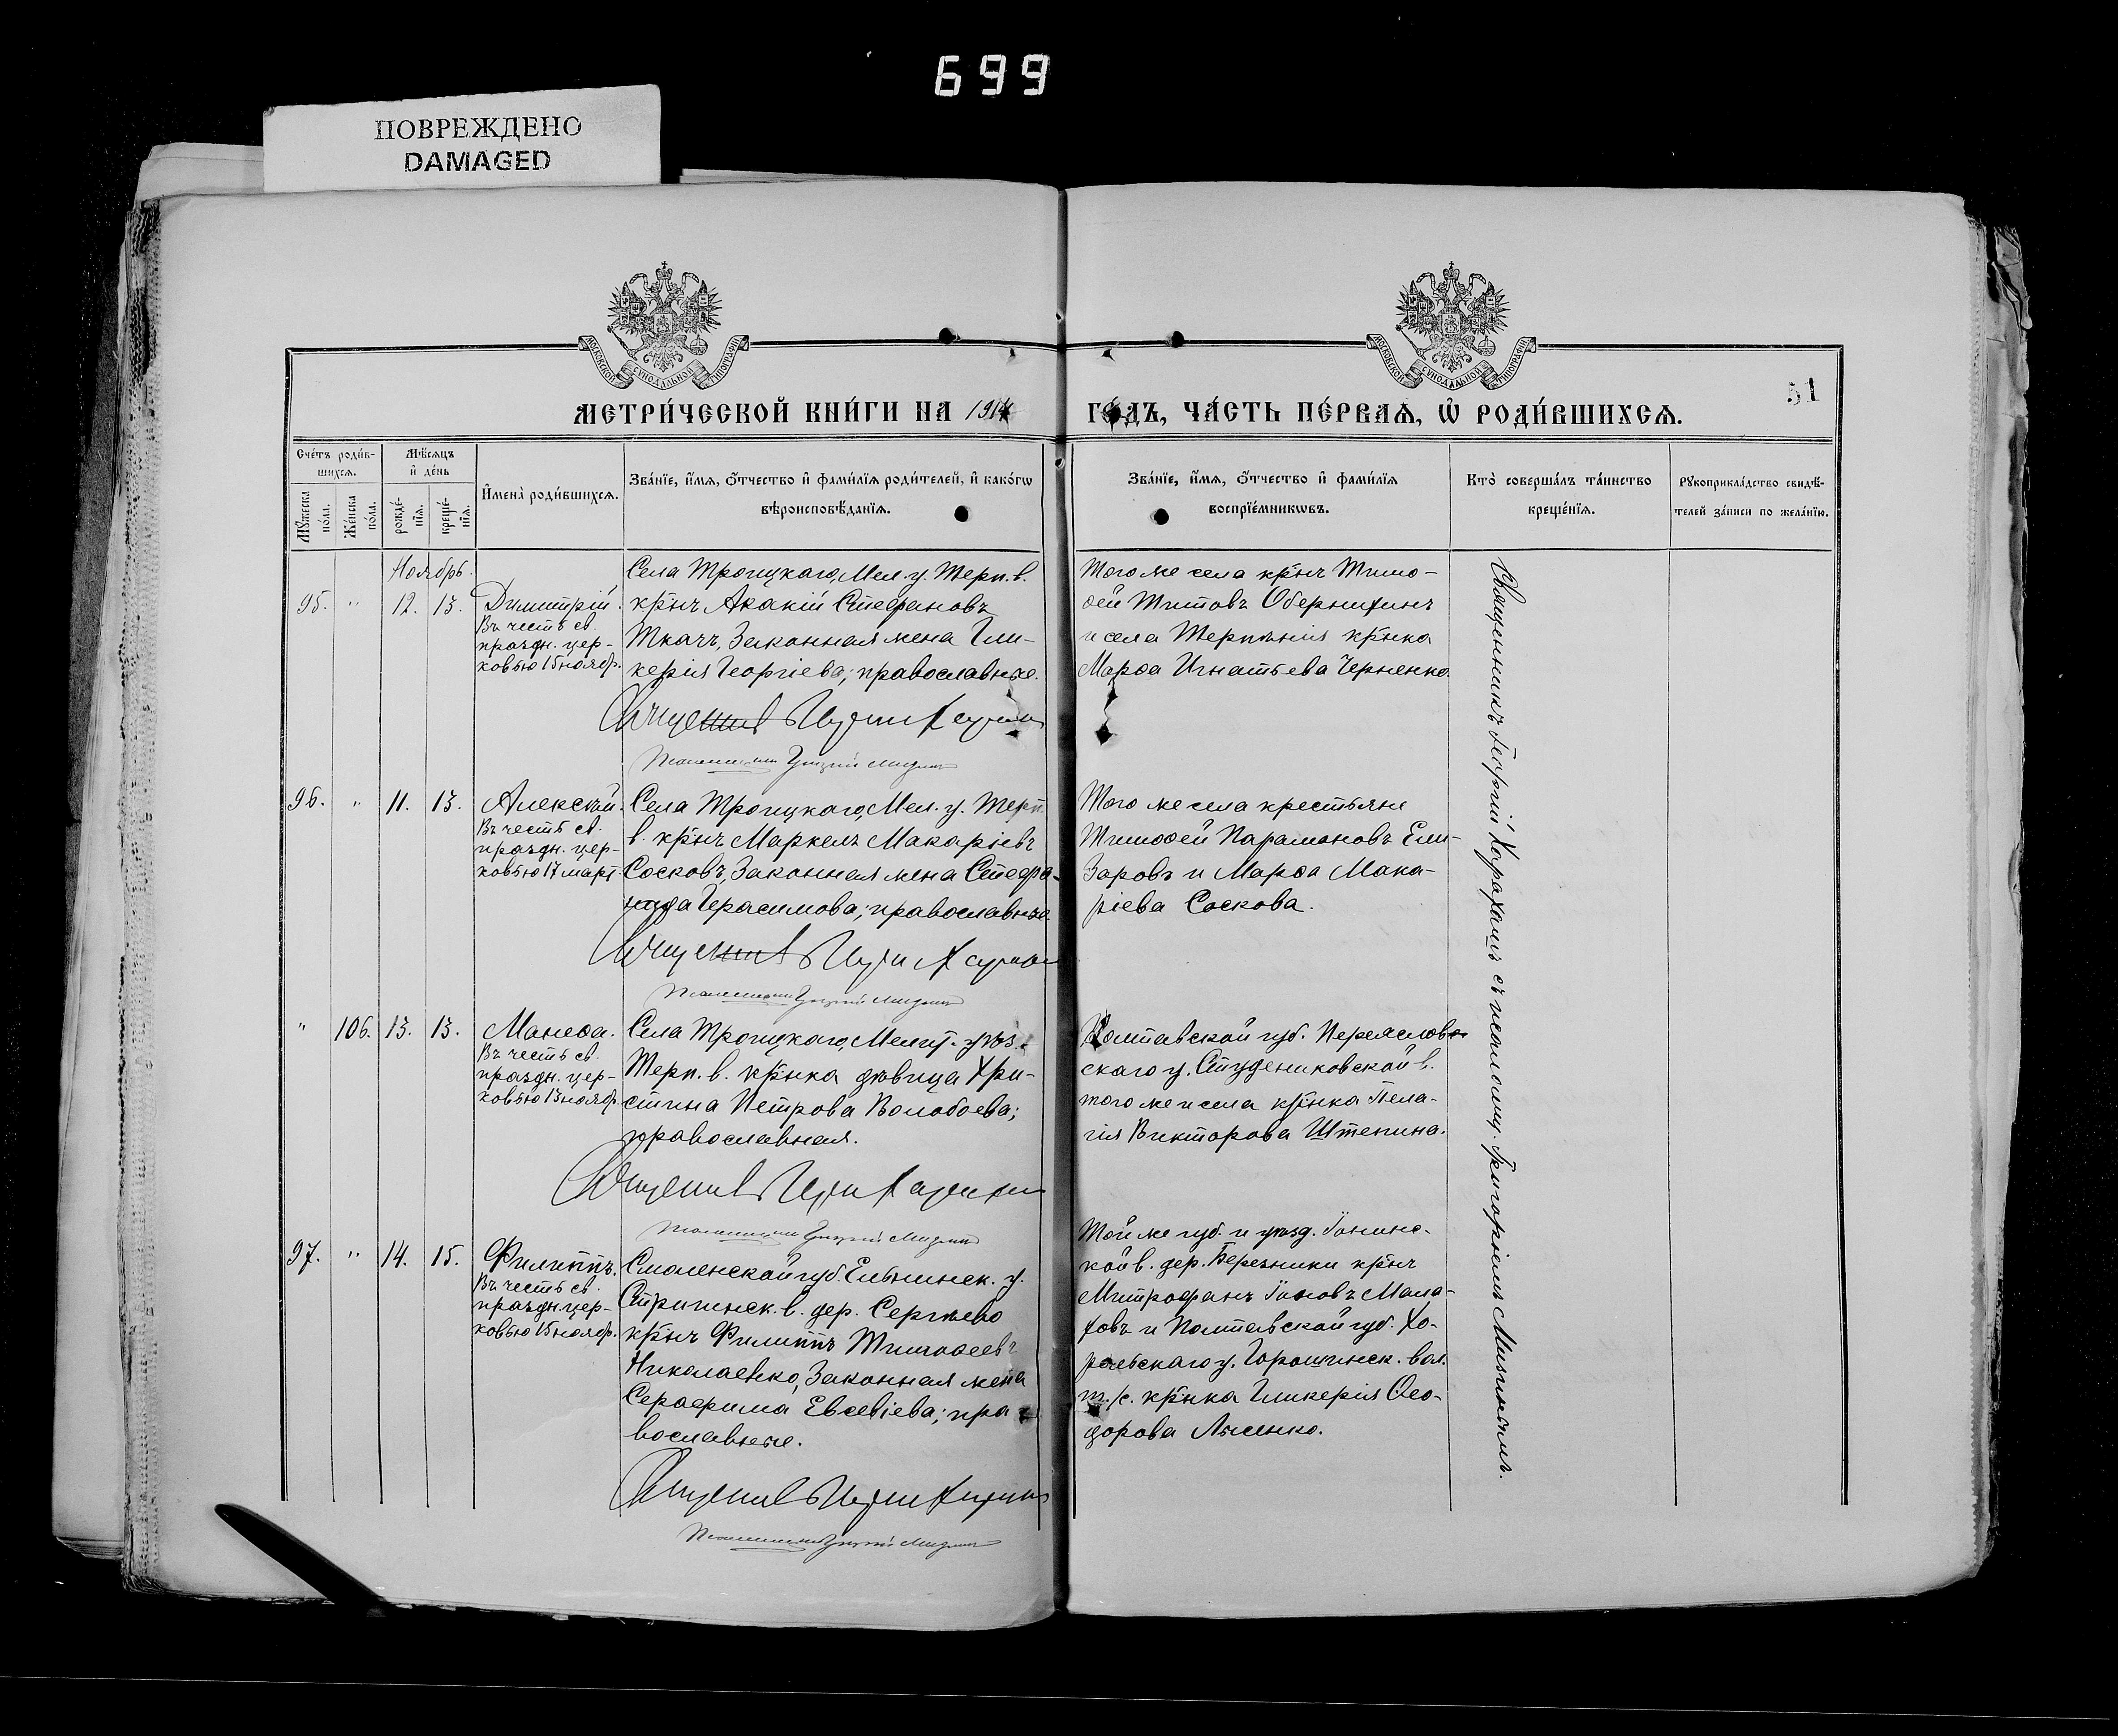 699
ПОВРЕЖДЕНО
DAMAGED
МОСКОВСКОЙ СУНОДАЛЬНОЙ ТИПОГРАФІИ
МОСКОВСКОЙ СУНОДАЛЬНОЙ ТИПОГРАФІИ
51
МЕТРИ́ЧЕСКОЙ КНИ́ГИ НА 1914
ГО́ДЪ, ЧА́СТЬ ПЕ́РВАѦ, Ѡ҆ РОДИ́ВШИХСѦ.
Сче́тъ роди́в-
шихсѧ.
Мѣ́сѧцъ
и҆ де́нь
Мꙋ́жеска
по́ла.
Же́нска
по́ла.
рожде́-
нїѧ.
креще́-
нїѧ.
И҆мена̀ роди́вшихсѧ.
Зва́нїе, и҆́мѧ, ѻ҆́тчество и҆ фами́лїѧ роди́телей, и҆ како́гѡ
вѣроисповѣ́данїѧ.
Зва́нїе, и҆́мѧ, ѻ҆́тчество и҆ фами́лїѧ
воспрїе́мникѡвъ.
Кто̀ соверша́лъ та́инство
креще́нїѧ.
Рꙋкоприкла́дство свидѣ́-
телей за́писи по жела́нїю.
Ноябрь.
95. " 12. 13.
Димитрій.
Въ честь св.
праздн. цер-
ковью 15 ноябр.
Села Троицкаго, Мел. у. Терп. в.
кр̃нъ Акакій Стефановъ
Ткачъ, Законная жена Гли-
керія Георгіева; православные.
Того же села кр̃нъ Тимо-
ѳей Титовъ Обернихинъ
и села Терпѣнія кр̃нка
Марѳа Игнатьева Черненко.
96. " 11. 13.
Алексѣй.
Въ честь св.
праздн. цер-
ковью 17 март.
Села Троицкаго, Мел. у. Терп.
в. кр̃нъ Маркелъ Макаріевъ
Сосковъ, Законная жена Стефа-
нида Герасимова; православные
Того же села крестьяне
Тимоѳей Парамоновъ Ели-
заровъ и Марѳа Мака-
ріева Соскова.
" 106. 13. 13.
Манеѳа.
Въ честь св.
праздн. цер-
ковью 13 ноябр.
Села Троицкаго, Мелит. уѣз.
Терп. в. кр̃нка дѣвица Хри-
стина Петрова Волобоева;
православная.
Полтавской губ. Переяслов-
скаго у. Студениковской в.
того же и села кр̃нка Пела-
гія Викторова Штепина.
97. " 14. 15.
Филиппъ.
Въ честь св.
праздн. цер-
ковью 15 ноябр.
Смоленской губ. Ельнинск. у.
Стригинск. в. дер. Сергѣево
кр̃нъ Филиппъ Тимоѳеевъ
Николаенко, Законная жена
Серафима Евсевіева; пра-
вославные.
Той же губ. и уѣзд.
кой в. дер. Березники кр̃нъ
Митрофанъ Іоновъ Мала-
ховъ и Полтавской губ. Хо-
рольскаго у. Горошинск. вол.
т./с. кр̃нка Гликерія Ѳео-
дорова Лысенко.
Священникъ Георгій съ псаломщ. Григоріемъ